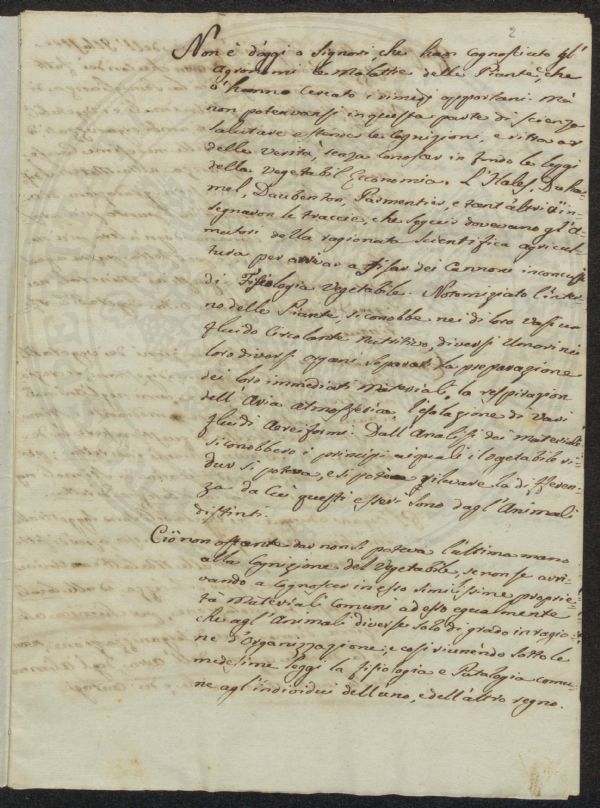 2
Non è d'oggi o Signori, che han cognosciuto gl'
Agronomi le Malattie delle Piante, e che
n'hanno cercato i rimedj opportuni. Mà
non potevansi in questa parte di scienza
salutare estender le Cognizioni, e ritrovar
delle verità, senza conoscer in fondo le leggi
della Vegetabil Economia. L'Hales, Duha-
mel, Daubenton, Parmentier, e tant'altri in-
segnaron le traccie, che seguir dovevano gl'A-
matori della ragionata Scientifica agricul-
tura per arrivar a fissar dei Cannoni inconcussi
di Fisiologia Vegetabile. Notomizato l'inter-
no delle Piante, si conobbe nei di loro Vasi un
fluido Circolante nutritivo, diversi Umori nei
loro diversi organi separati la preparazione
dei loro immediati Materiali, la respirazion
dell'Aria Atmosferica, l'esalazione di varj
fluidi Aereiformi. Dall'Analisi dei Materiali
si conobbero i principj ai quali il vegetabile ri-
dur si poteva, e si potè rilevare la differen-
za da cui questi esseri sono dagl'Animali
distinti.
Ciò non ostante dar non si poteva l'ultima mano
alla Cognizione del Vegetabile, se non se arri-
vando a Cognoscer in esso simil.ssime proprie-
tà Materiali comuni ad esso egualmente
che agl'Animali diverse solo di grado in ragio-
ne d'Organizzazione; e così riunendo sotto le
medesime leggi la fisiologia e Patologia comu-
ne agl'individui dell'uno, e dell'altro regno.